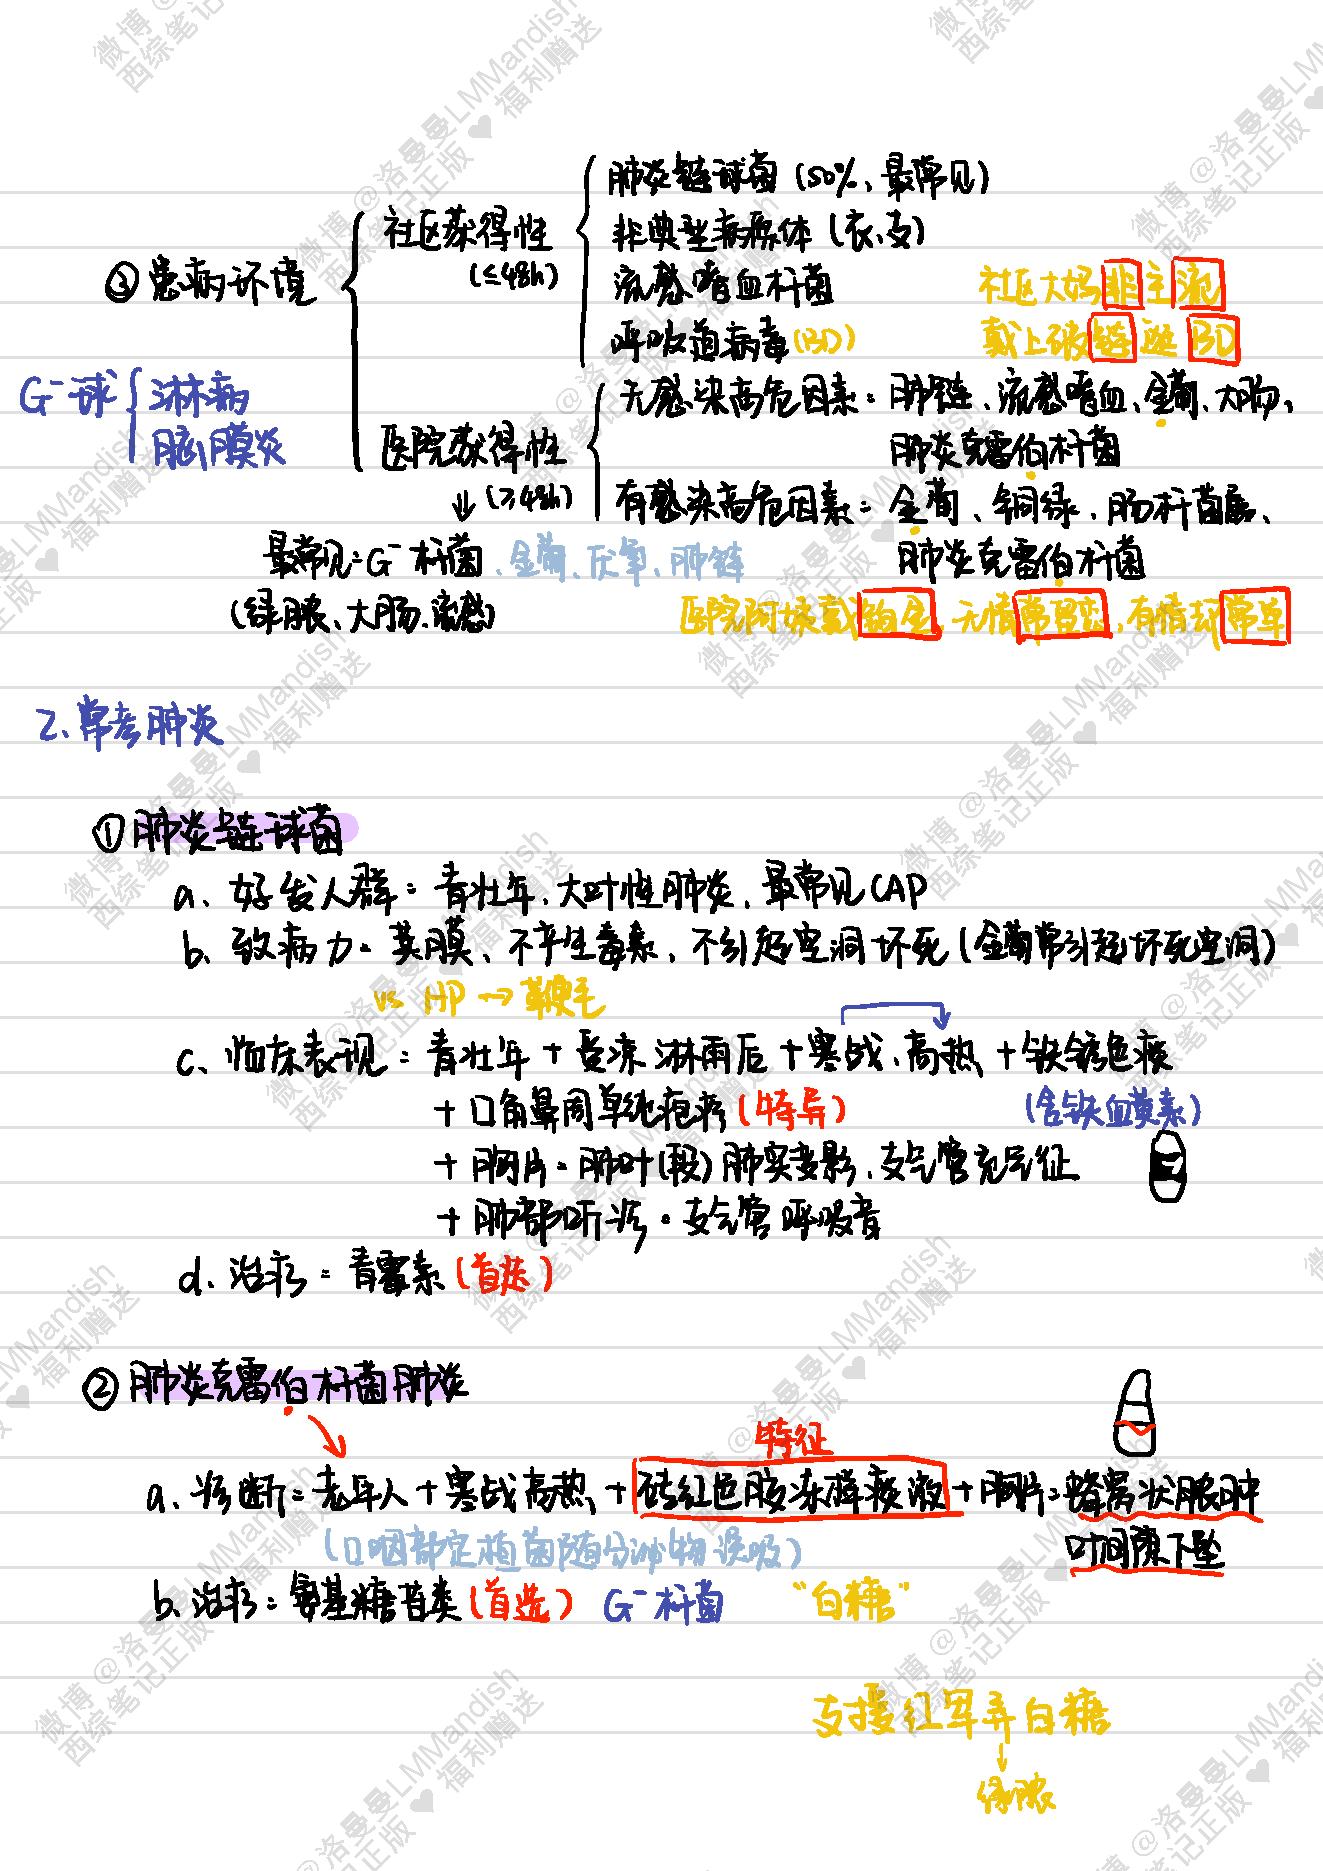 肺炎链球菌（50%、最常见）
社区获得性
非典型病原体（衣、支）
（≤48h）
③患病环境
流感嗜血杆菌
社区大妈非主流
呼吸道病毒（BD）
戴上破链逛BD
G⁻球
淋病
脑膜炎
无感染高危因素：肺链、流感嗜血、金葡、大肠、
肺炎克雷伯杆菌
医院获得性
（≥48h）
有感染高危因素：金葡、铜绿、肠杆菌属、
肺炎克雷伯杆菌
最常见：G⁻杆菌、金葡、厌氧、肺链
（绿脓、大肠、流感）
医院阿姨戴铂金，无情常留恋，有情却常单
2、常考肺炎
①肺炎链球菌
a、好发人群：青壮年、大叶性肺炎、最常见CAP
b、致病力：荚膜、不产生毒素、不引起空洞坏死（金葡常引起坏死空洞）
vs HP→鞭毛
c、临床表现：青壮年+受凉淋雨后+寒战、高热+铁锈色痰
+口角鼻周单纯疱疹（特异）
（含铁血黄素）
+胸片：肺叶（段）肺实变影、支气管充气征
+肺部听诊：支气管呼吸音
d、治疗：青霉素（首选）
②肺炎克雷伯杆菌肺炎
特征
a、诊断：老年人+寒战高热+砖红色胶冻样痰液+胸片：蜂窝状脓肿
（口咽部定植菌随分泌物误吸）
叶间隙下坠
b、治疗：氨基糖苷类（首选） G⁻杆菌 “白糖”
支援红军弄白糖
↓
绿脓
微博@洛曼曼LMMandish
西综笔记正版♥福利赠送